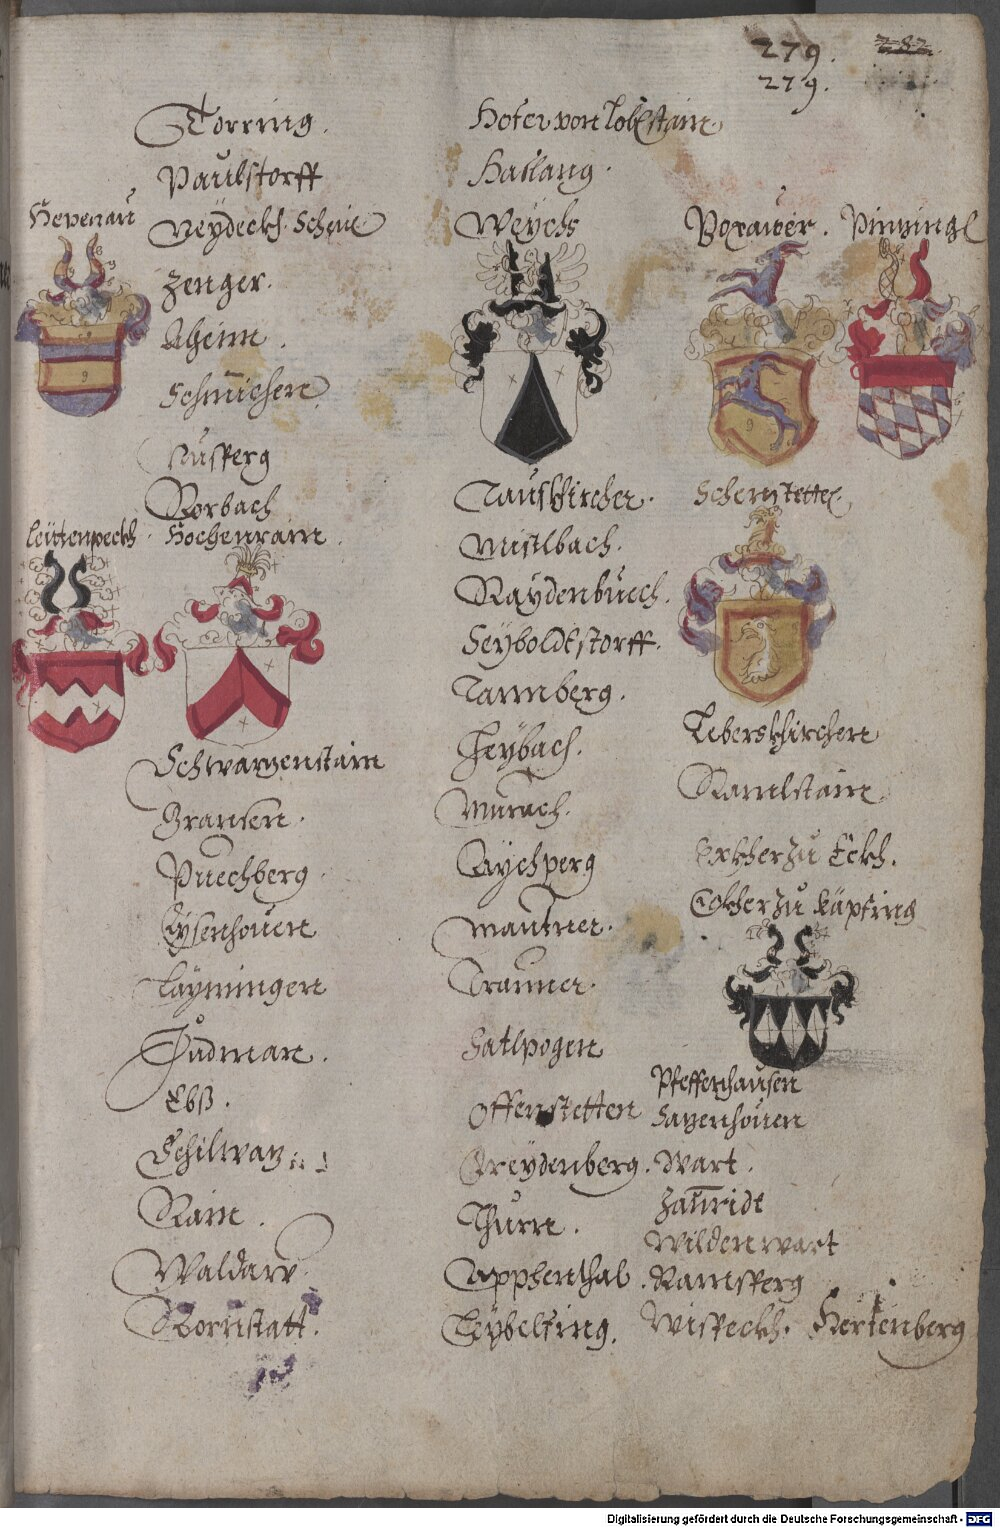 279.
279.
282
Torring.
Paulstorff
Hepenau
Neydeckh.
Zenger.
Aheim.
Schmichen
Nusperg
Rorbach
Leüttenpeckh. Hochenrain.
Schwarzenstain
Fransen.
Puechberg.
Eysenhouen
Layningen
Judman.
Ebß.
Schilwaz
Rain.
Waldaw.
Nornstatt.
Hofer von Lobenstain.
Haslang.
Weychs
Tauffkircher.
Mistlbach.
Raydenbuech.
Seyboldtstorff.
Tannberg.
Freybach.
Murach.
Aychperg
Mautner.
Trauner.
Satlpogen
Offenstetten
Freydenberg.
Thurn.
Appfenthal.
Leybelfing.
Poxauer. Pinzingl
Schenstetter.
Leberskhirchen
Ramlstain
Erkher zu Eckh.
Ecker zu Käpfing
Pfeffenhausen
Sazenhouen
Wart.
Zanride
Wildenwart
Ramsperg
Wispeckh. Hertenberg
Digitalisierung gefördert durch die Deutsche Forschungsgemeinschaft - DFG